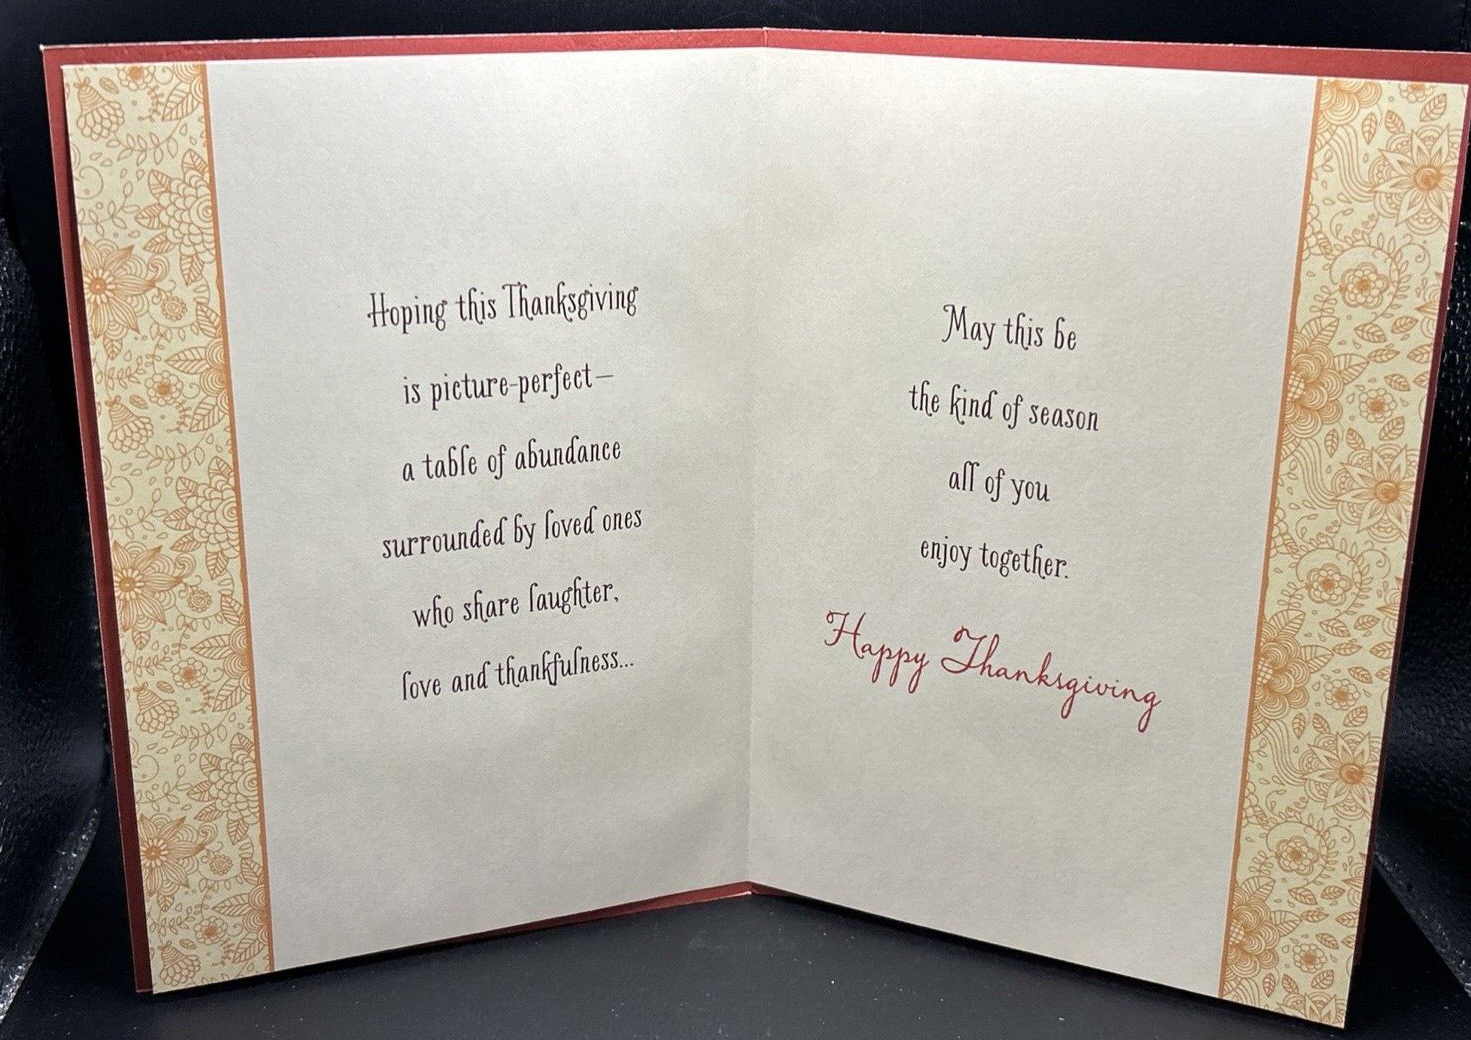 Hoping this Thanksgiving
is picture-perfect—
a table of abundance
surrounded by loved ones
who share laughter,
love and thankfulness...
May this be
the kind of season
all of you
enjoy together.
Happy Thanksgiving